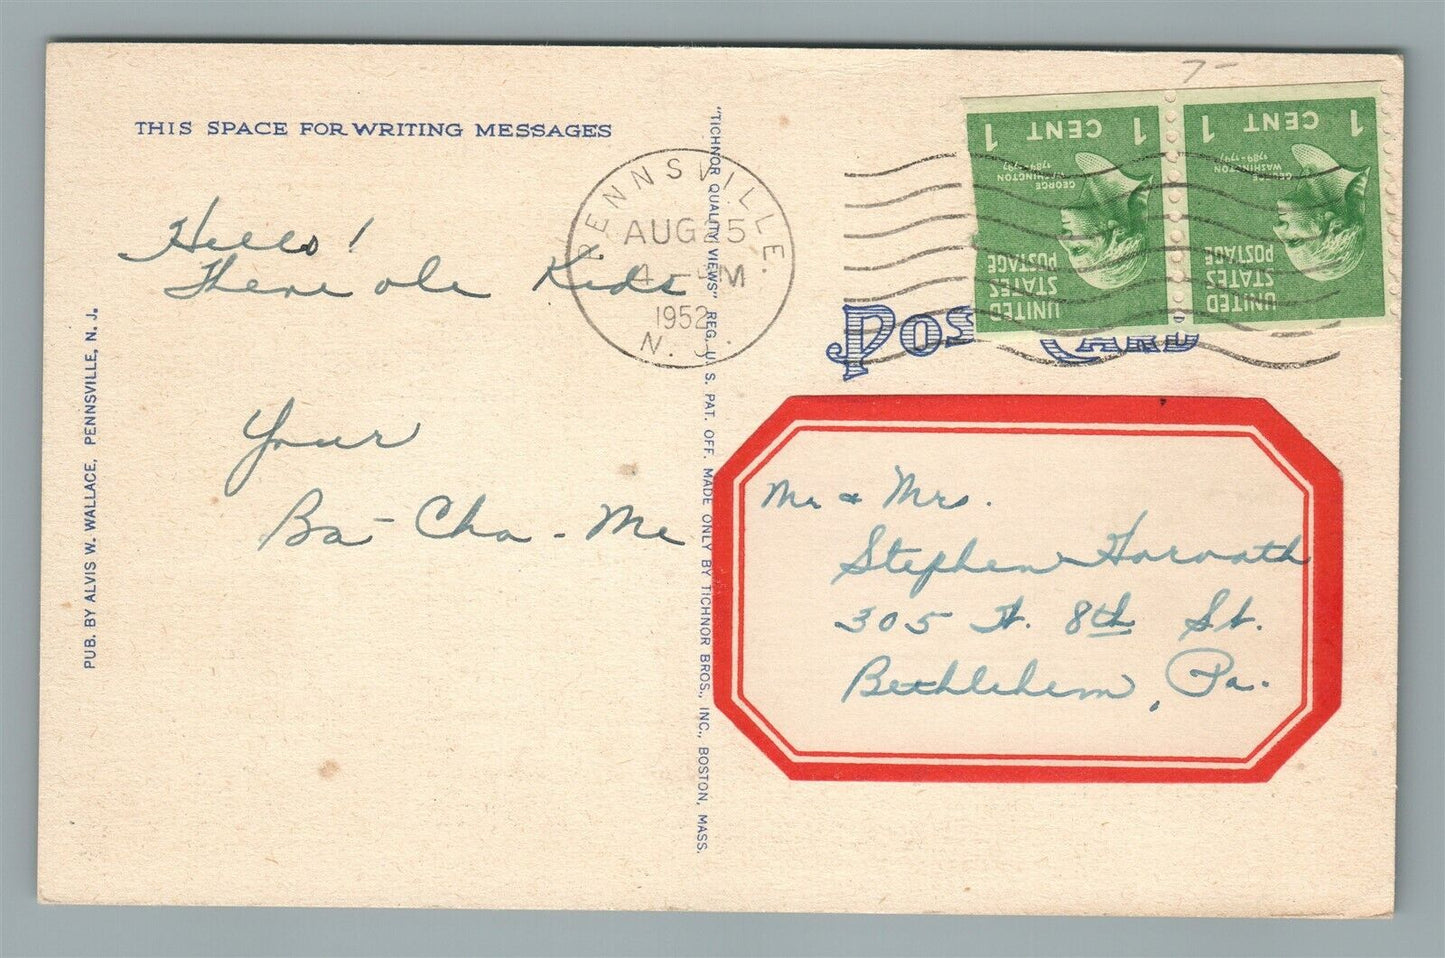 THIS SPACE FOR WRITING MESSAGES
Hello!
There ole Kids
Your
Ba-Cha-Me
PUB. BY ALVIS W. WALLACE, PENNSVILLE, N. J.
"TICHNOR QUALITY VIEWS" REG. U. S. PAT. OFF. MADE ONLY BY TICHNOR BROS., INC., BOSTON, MASS.
PENNSVILLE.
AUG 5
4 - PM
1952
N. J.
1 CENT 1
GEORGE
WASHINGTON
1789-1797
UNITED
STATES
POSTAGE
1 CENT 1
GEORGE
WASHINGTON
1789-1797
UNITED
STATES
POSTAGE
7-
POS CARD
Mr & Mrs.
Stephen Horvath
305 H. 8th St.
Bethlehem, Pa.